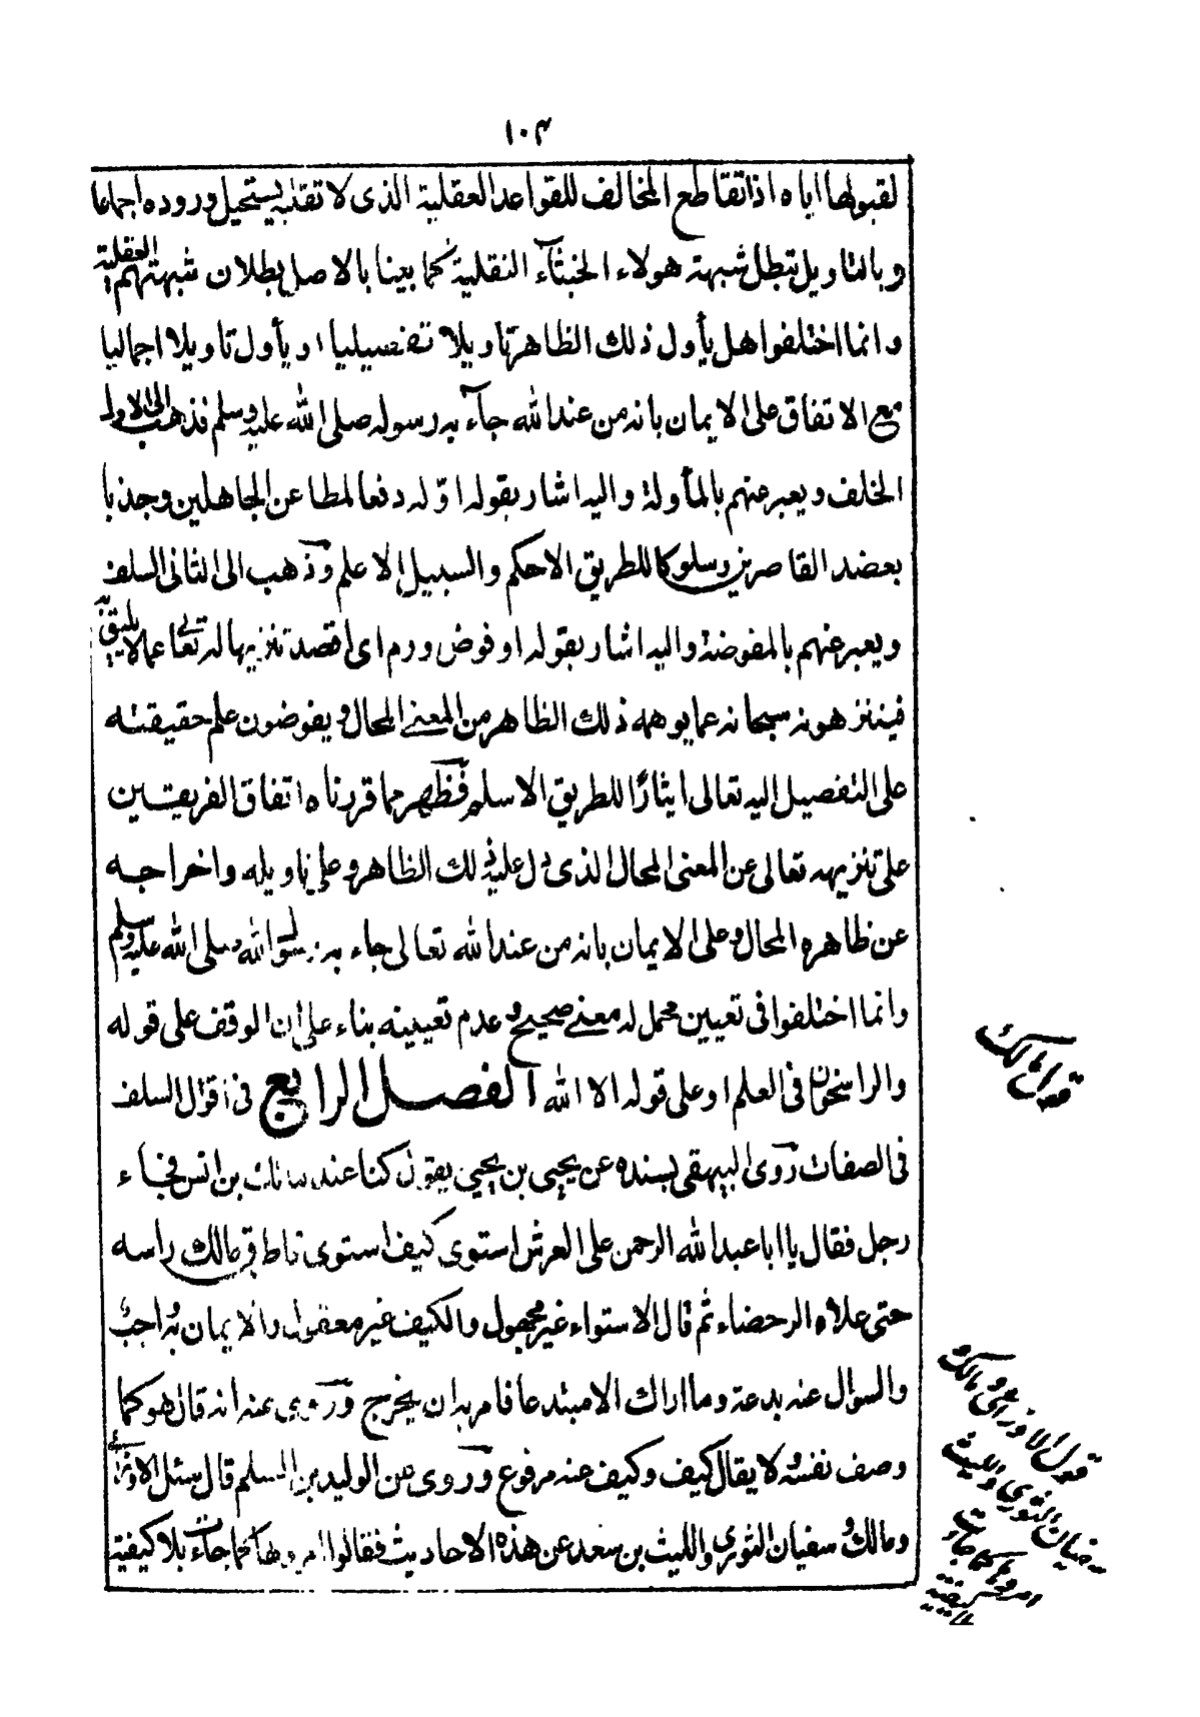 ١٠٣
لقبولها اياه اذ القاطع المخالف للقواعد العقلية الذى لا تقبله يستحيل وروده اجماعا
وبالتاويل تبطل شبهة هولاء الخبثاء النقلية كما بينا بالاصل بطلان شبهتهم العقلية
وانما اختلفوا هل يأول ذلك الظاهر تاويلا تفصيليا او يأول تاويلا اجماليا
مع الاتفاق على الايمان بانه من عند الله جآء به رسوله صلى الله عليه وسلم فذهب الى الاول
الخلف ويعبر عنهم بالمأولة واليه اشار بقوله اوّله دفعا لمطاعن الجاهلين وجذبا
بعضد القاصرين وسلوكا للطريق الاحكم والسبيل الاعلم وذهب الى الثانى السلف
ويعبر عنهم بالمفوضة واليه اشار بقوله او فوض ورم اى اقصد تنزيها له تعالى عما لا يليق به
فينزهونه سبحانه عما يوهمه ذلك الظاهر من المعنے المحال ويفوضون علم حقيقته
على التفصيل اليه تعالى ايثارًا للطريق الاسلم فظهر مما قررناه اتفاق الفريقين
على تنزيهه تعالى عن المعنى المحال الذى دل عليه ذلك الظاهر وعلى تاويله واخراجه
عن ظاهره المحال وعلى الايمان بانه من عند الله تعالى جاء به رسول الله صلى الله عليه وسلم
وانما اختلفوا فى تعيين محمل له معنے صحيح وعدم تعيينه بناء على ان الوقف على قوله
والراسخون فى العلم او على قوله الا الله الفصل الرابع فى اقوال السلف
فى الصفات روى البيهقى بسنده عن يحيى بن يحيى يقول كنا عند مالك بن انس فجاء
رجل فقال يا ابا عبد الله الرحمن على العرش استوى كيف استوى فاطرق مالك راسه
حتى علاه الرحضاء ثم قال الاستواء غير مجهول والكيف غير معقول والايمان به واجب
والسؤال عنه بدعة وما اراك الا مبتدعا فامر به ان يخرج وروى عنه انه قال هو كما
وصف نفسه لا يقال كيف وكيف عنه مرفوع وروى عن الوليد بن المسلم قال سئل الاوزاعى
ومالك و سفيان الثورى والليث بن سعد عن هذه الاحاديث فقالوا امروها كما جآءت بلا كيفية
قول مالك
قول الاوزاعى و مالك
سفيان الثورى والليث
امروها كما جاءت
بلا كيفية